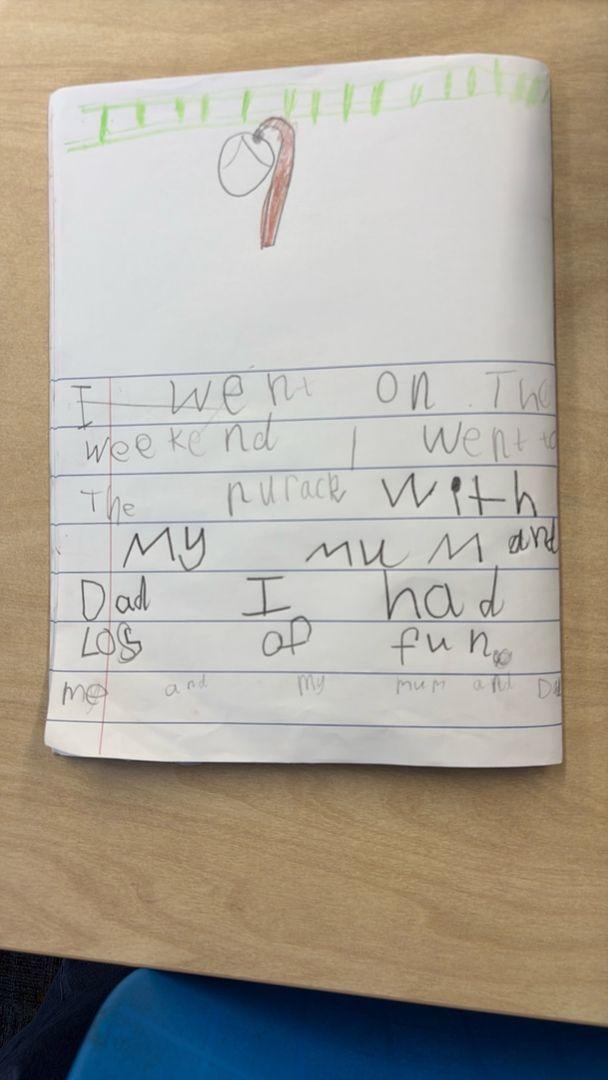 I went on The
weekend I went to
The nurack with
My muM and
Dad I had
LOS of fun.
me and my mum and Da